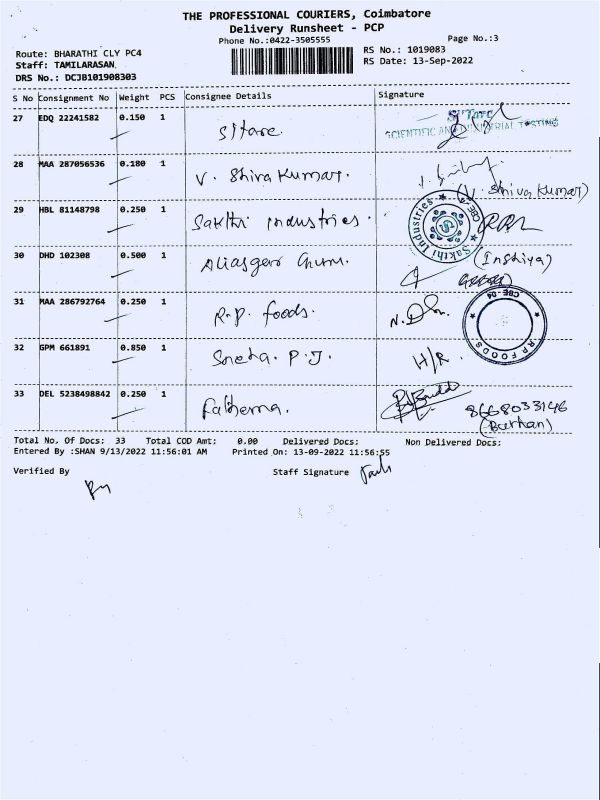 THE PROFESSIONAL COURIERS, Coimbatore
Delivery Runsheet - PCP
Phone No.:0422-3505555
Page No.:3
Route: BHARATHI CLY PC4
Staff: TAMILARASAN.
DRS No.: DCJB101908303
RS No.: 1019083
RS Date: 13-Sep-2022
S No Consignment No Weight PCS Consignee Details Signature
27 EDQ 22241582 0.150 1 Sitarc
S'Tarc
SCIENTIFIC AND INDUSTRIAL TESTING
28 MAA 287056536 0.180 1 V. Shiva Kumar.
(V. Shiva Kumar)
29 HBL 81148798 0.250 1 Sakthi industries.
Sakthi Industries ★ CBE-4 ★
30 DHD 102308 0.500 1 Aliasger
(Inshiya)
31 MAA 286792764 0.250 1 R.P. foods.
RP FOODS ★ CBE-04 ★
32 GPM 661891 0.850 1 Sneha. P.J. H/R.
33 DEL 5238498842 0.250 1 Fathema.
8668033146
(Burhan)
Total No. Of Docs: 33 Total COD Amt: 0.00 Delivered Docs: Non Delivered Docs:
Entered By :SHAN 9/13/2022 11:56:01 AM Printed On: 13-09-2022 11:56:55
Verified By Staff Signature